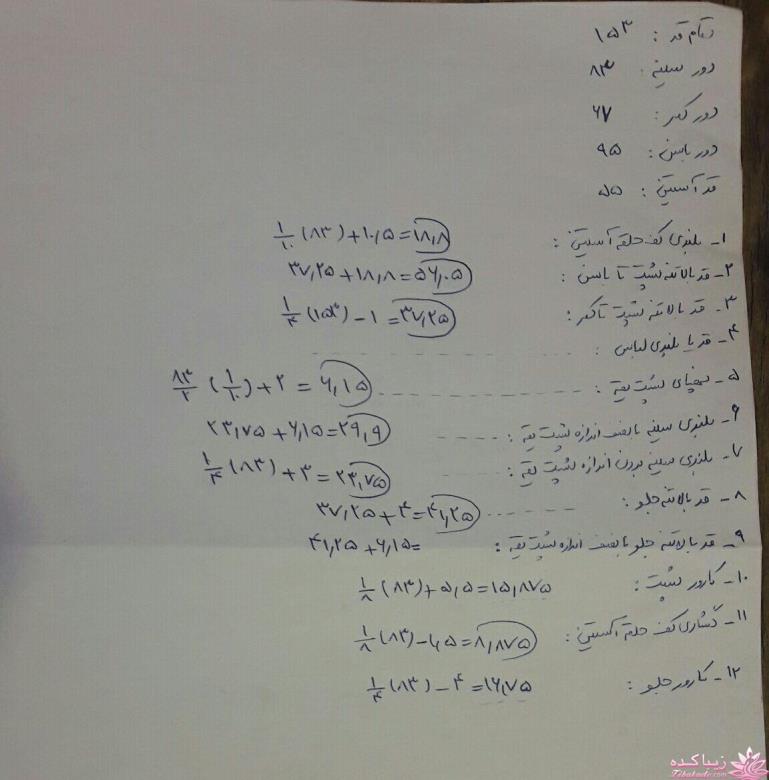 تمام قد : ۱۵۳
دور سینه : ۸۳
دور کمر : ۶۷
دور باسن : ۹۵
قد آستین : ۵۵
۱- بلندی کف حلقه آستین : ۱/۱۰ (۸۳) + ۱۰,۵ = ۱۸,۸
۲- قد بالاتنه پشت تا باسن : ۳۷,۲۵ + ۱۸,۸ = ۵۶,۰۵
۳- قد بالاتنه پشت تا کمر : ۱/۴ (۱۵۳) - ۱ = ۳۷,۲۵
۴- قد یا بلندی لباس :
۵- پهنای پشت یقه : ۸۳/۲ (۱/۱۰) + ۲ = ۶,۱۵
۶- بلندی سینه با نصف اندازه پشت یقه : ۲۳,۷۵ + ۶,۱۵ = ۲۹,۹
۷- بلندی سینه بدون اندازه پشت یقه : ۱/۴ (۸۳) + ۳ = ۲۳,۷۵
۸- قد بالاتنه جلو : ۳۷,۲۵ + ۴ = ۴۱,۲۵
۹- قد بالاتنه جلو با نصف اندازه پشت یقه : ۴۱,۲۵ + ۶,۱۵ =
۱۰- کارور پشت : ۱/۸ (۸۳) + ۵,۵ = ۱۵,۸۷۵
۱۱- گشادی کف حلقه آستین : ۱/۸ (۸۳) - ۱,۵ = ۸,۸۷۵
۱۲- کارور جلو : ۱/۴ (۸۳) - ۴ = ۱۶,۷۵
زیباکده
Zibakade.com